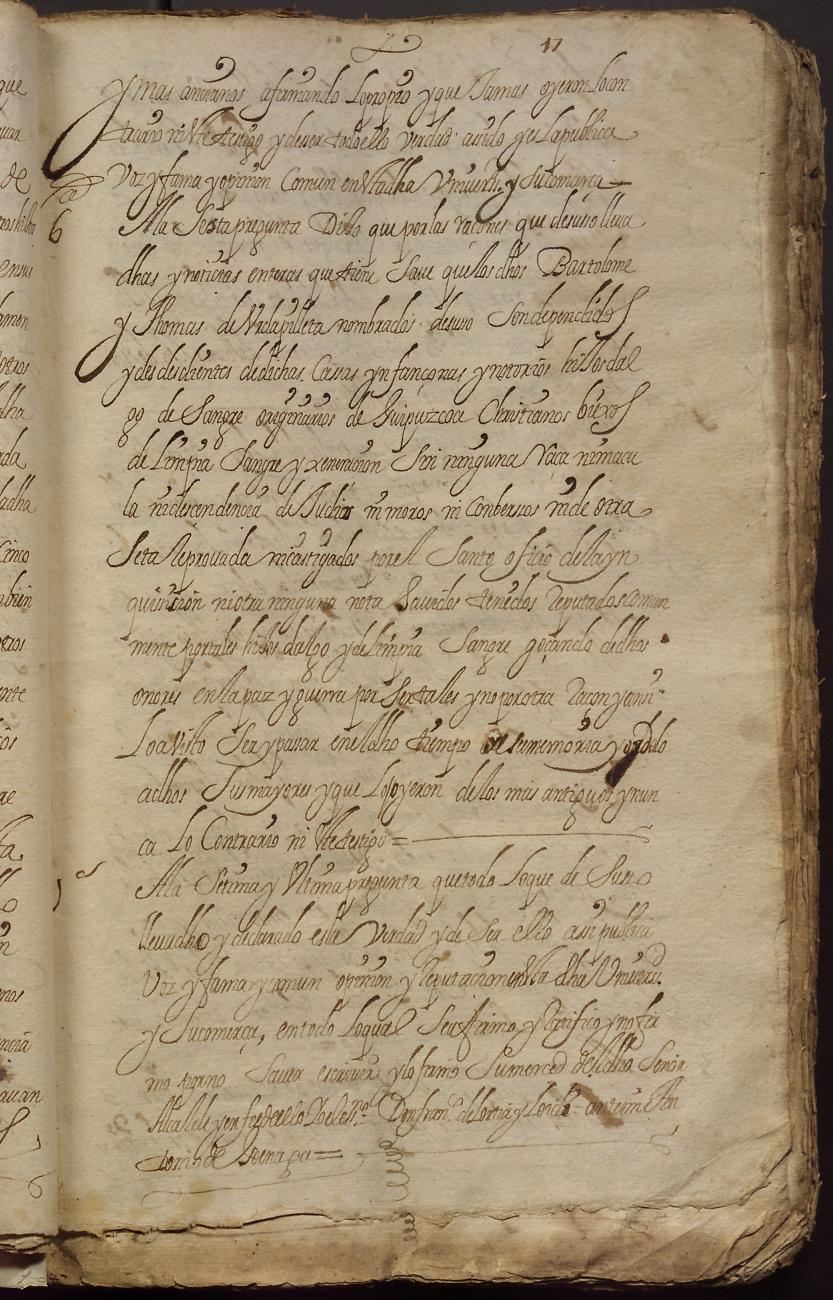 17
y mas ancianos afirmando lo propio y que Jamas oyeron lo con
trario ni Vio este testigo y de ser todo ello verdad a sido y es la publica
Voz y fama y opinion Comun en Vsta dha Vniversd. y su comarca
6
A la Sesta pregunta Dixo que por las raçones que de suso lleua
dhas y noticias enteras que tiene Saue que los dhos Bartolome
y Thomas de Vidapilleta nombrados de suso Son dependidos
y desdesdientes de dichas Cassas ynfançonas y notorios hijos dal
go de Sangre originarios de Guipuzcoa Christianos biexos
de limpia Sangre y xeneracion Sin ninguna Raça ni macu
la ni descendencia de Judios ni moros ni Conbersos ni de otra
Seta Reprouada ni castigados por el Santo oficio de la yn
quisicion ni otra ninguna nota hauidos tenidos Reputados comun
mente por tales hijos dalgo y de limpia Sangre goçando de dhos
onores en la paz y guerra por Ser tales y no por otra Raçon y ansi
Lo a Visto Ser y passar en el dho tiempo de su memoria y oydolo
a dhos Sus mayores y que Lo oyeron de los mas antiguos y nun
ca Lo Contrario ni Vio este testigo =
A la Setima y Vltima pregunta que todo Lo que de Suso
lleua dho y declarado es la Verdad y de Ser ello asi publica
Voz y fama y comun opinion y Reputacion en Vsta dha Vniversd.
y Su comarca, en todo Lo qual Se afirmo y Ratifico y no fir
mo por no Sauer escriuir y lo firmo Su merced del dho Señor
Alcalde y en fee de ello Yo el essno. Don franco. de antemi An
tonio de